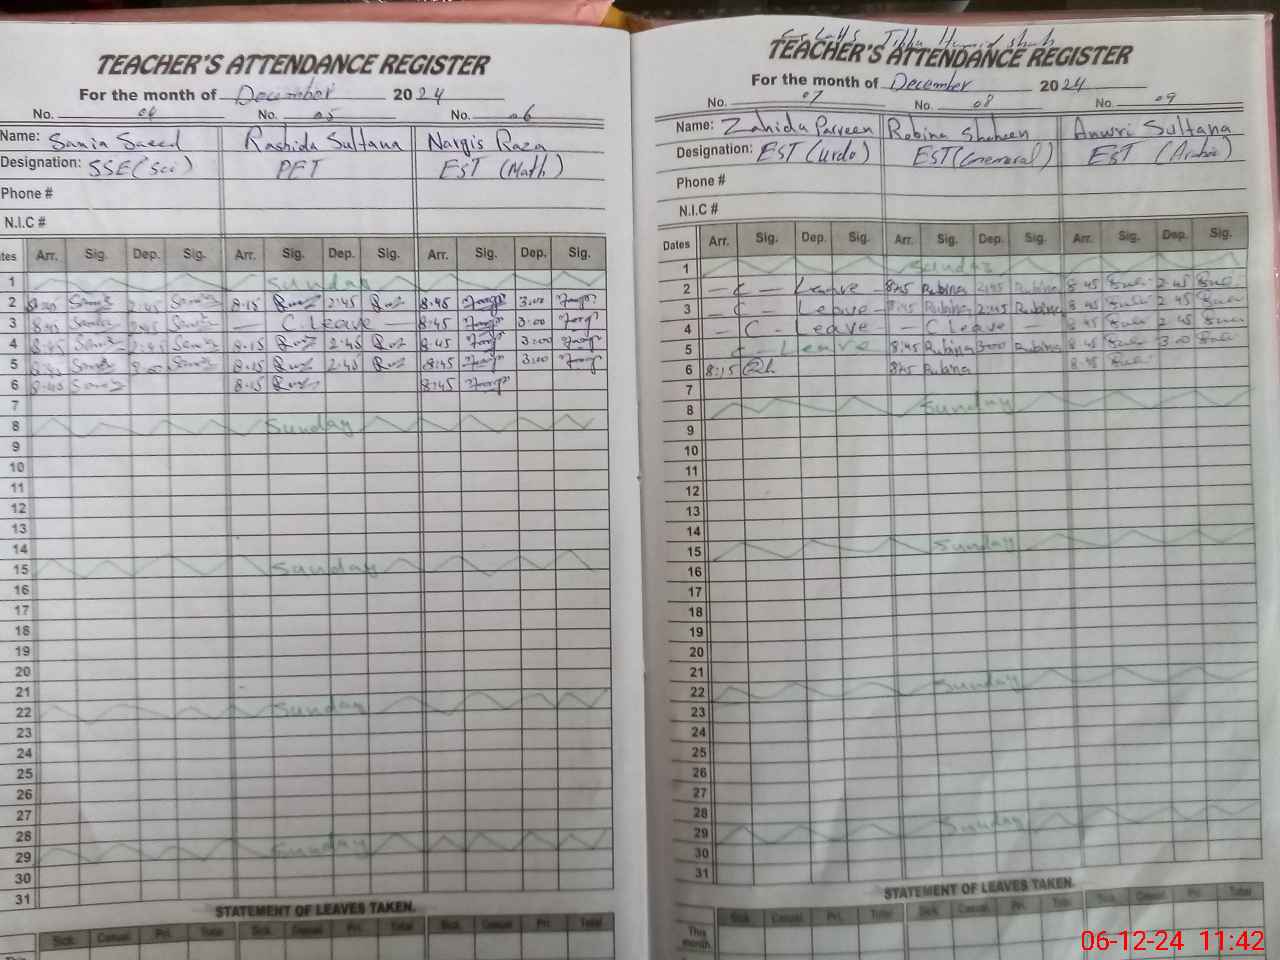 TEACHER'S ATTENDANCE REGISTER
For the month of December 2024
No. 04 No. 05 No. 06
Name: Sania Saeed Rashida Sultana Nargis Raza
Designation: SSE (Sci) PET EST (Math)
Phone #
N.I.C #
tes Arr. Sig. Dep. Sig. Arr. Sig. Dep. Sig. Arr. Sig. Dep. Sig.
1 Sunday
2 8:15 2:45 8:45 3:00
3 8:45 2:45 — C. Leave — 8:45 3:00
4 8:45 2:45 8:15 2:45 8:45 3:00
5 8:15 2:45 8:45 3:00
6 8:15 8:45
7
8 Sunday
9
10
11
12
13
14
15 Sunday
16
17
18
19
20
21
22 Sunday
23
24
25
26
27
28
29 Sunday
30
31
STATEMENT OF LEAVES TAKEN.
Sick Casual Pri. Total Sick Casual Pri. Total Sick Casual Pri. Total
This
TEACHER'S ATTENDANCE REGISTER
For the month of December 2024
No. 07 No. 08 No. 09
Name: Zahida Parveen Robina Shaheen Anwri Sultana
Designation: EST (Urdo) EST (General) EST (Arabic)
Phone #
N.I.C #
Dates Arr. Sig. Dep. Sig. Arr. Sig. Dep. Sig. Arr. Sig. Dep. Sig.
1 Sunday
2 — C — Leave — 8:45 Rubina 2:45 Rubina 8 45 2 45
3 — C — Leave — 8:45 Rubina 2:45 Rubina 8 45 2 45
4 — C - Leave — C Leave — 8 45 2 45
5 C - Leave — 8:45 Rubina 3:00 Rubina 8 45 3 00
6 8:15 8:45 Rubina 8 45
7
8 Sunday
9
10
11
12
13
14
15 Sunday
16
17
18
19
20
21
22 Sunday
23
24
25
26
27
28
29 Sunday
30
31
STATEMENT OF LEAVES TAKEN.
Sick Casual Pri. Total Sick Casual Pri. Total Sick Casual Pri. Total
This
month
06-12-24 11:42